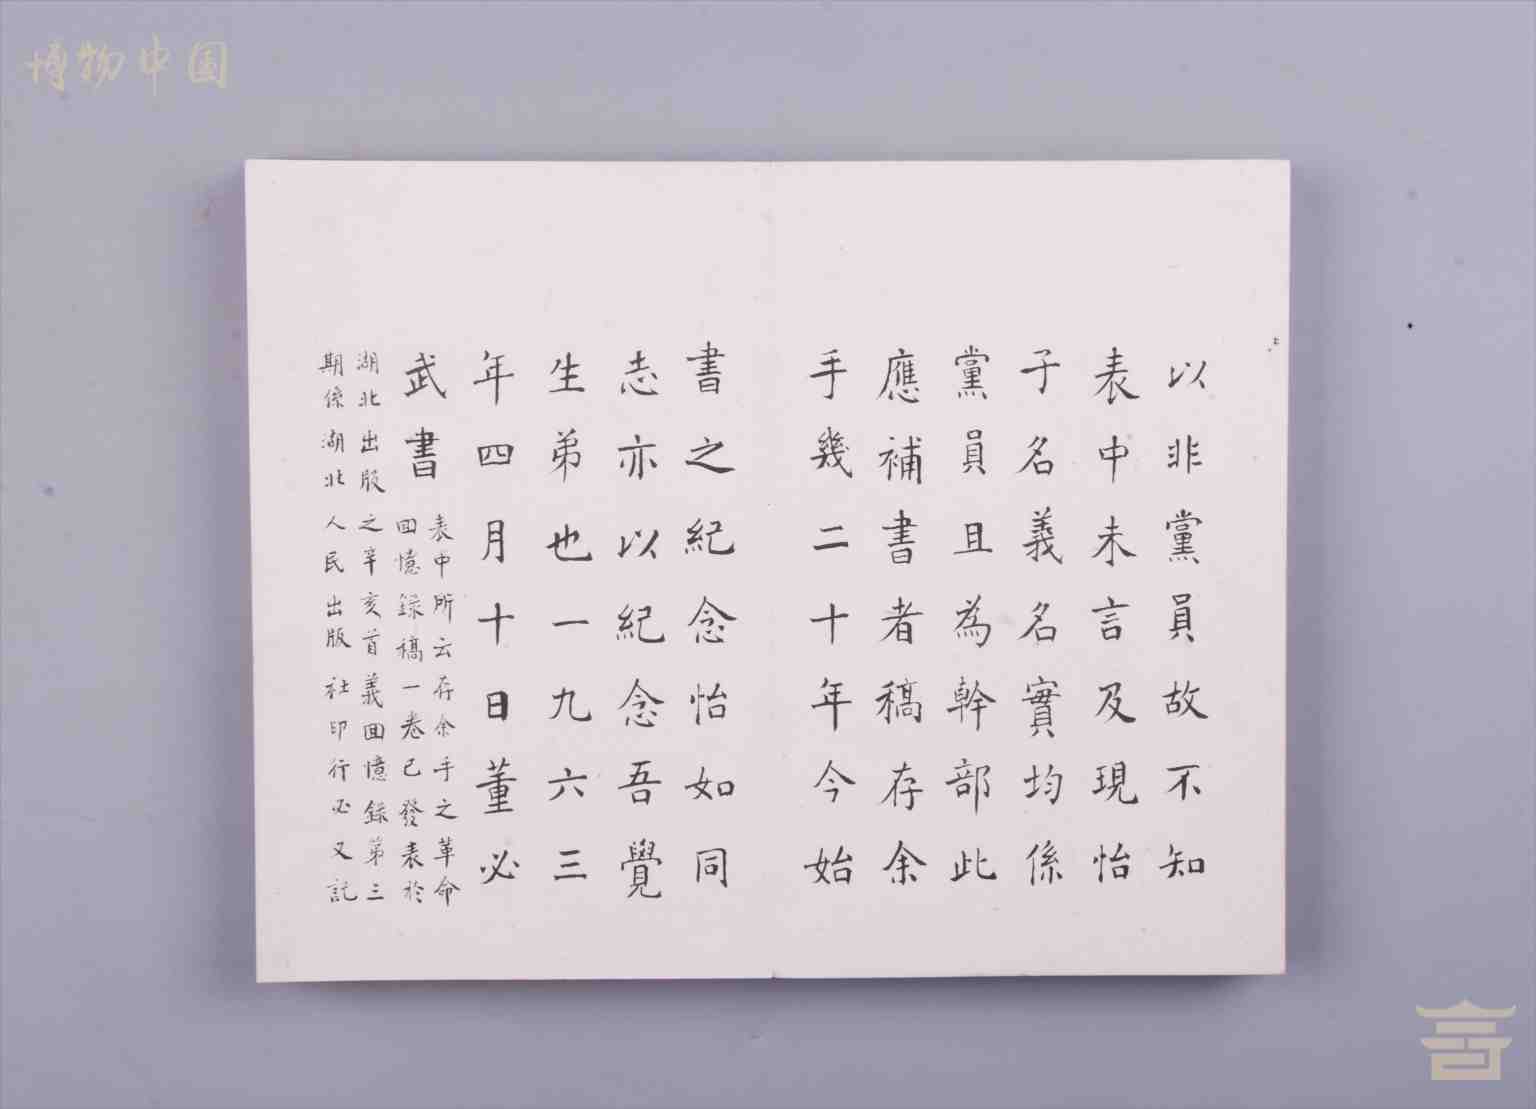 博物中国
以非黨員故不知
表中未言及現怡
子名義名實均係
黨員且為幹部此
應補書者稿存余
手幾二十年今始
書之紀念怡如同
志亦以紀念吾覺
生弟也一九六三
年四月十日董必
武書
表中所云存余手之革命
回憶録稿一卷已發表於
湖北出版之辛亥首義回憶録第三
期係湖北人民出版社印行必又記